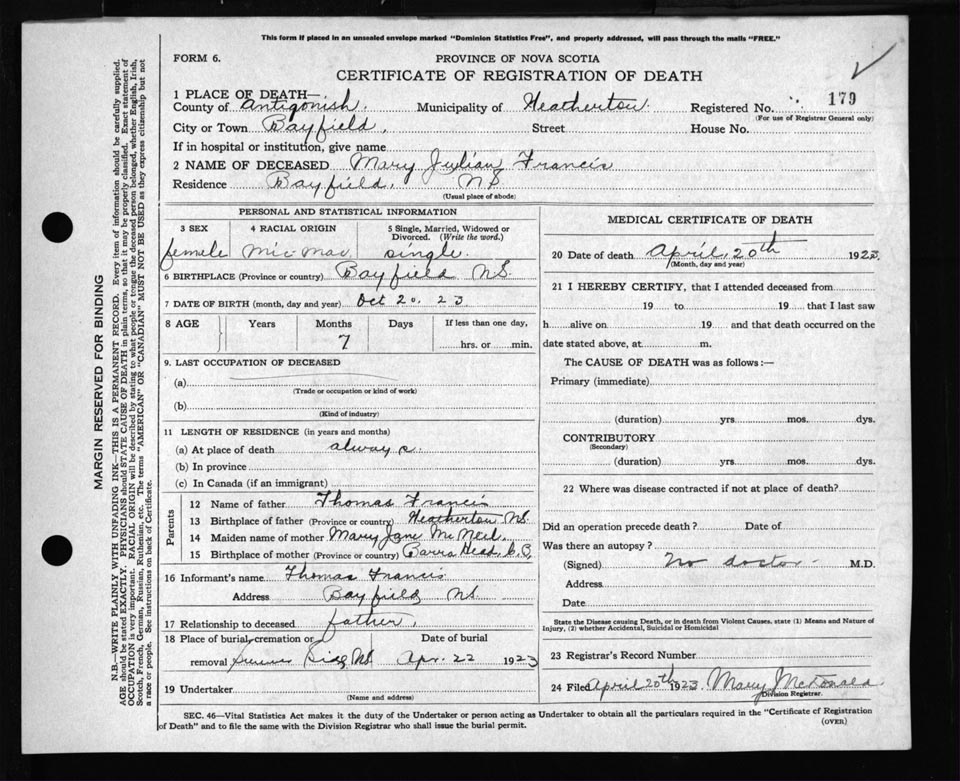 This form if placed in an unsealed envelope marked "Dominion Statistics Free", and properly addressed, will pass through the mails "FREE."
FORM 6.
PROVINCE OF NOVA SCOTIA
CERTIFICATE OF REGISTRATION OF DEATH
1 PLACE OF DEATH—
County of Antigonish. Municipality of Heatherton. Registered No. 179
(For use of Registrar General only)
City or Town Bayfield, Street House No.
If in hospital or institution, give name
2 NAME OF DECEASED Mary Julian Francis
Residence Bayfield, NS
(Usual place of abode)
MARGIN RESERVED FOR BINDING
N.B.—WRITE PLAINLY WITH UNFADING INK—THIS IS A PERMANENT RECORD. Every item of information should be carefully supplied.
AGE should be stated EXACTLY. PHYSICIANS should STATE CAUSE OF DEATH in plain terms, so that it may be properly classified. Exact statement of
OCCUPATION is very important. RACIAL ORIGIN will be described by stating to what people or tongue the deceased person belonged, whether English, Irish,
Scotch, French, German, Russian, Ruthenian, etc. The terms "AMERICAN" OR "CANADIAN" MUST NOT BE USED as they express citizenship but not
a race or people. See instructions on back of Certificate.
PERSONAL AND STATISTICAL INFORMATION
3 SEX 4 RACIAL ORIGIN 5 Single, Married, Widowed or
Divorced. (Write the word.)
female Mic-Mac single.
6 BIRTHPLACE (Province or country) Bayfield NS.
7 DATE OF BIRTH (month, day and year) Oct 20, 23
8 AGE Years Months Days If less than one day,
7 hrs. or min.
9. LAST OCCUPATION OF DECEASED
(a)
(Trade or occupation or kind of work)
(b)
(Kind of industry)
11 LENGTH OF RESIDENCE (in years and months)
(a) At place of death always.
(b) In province
(c) In Canada (if an immigrant)
Parents
12 Name of father Thomas Francis
13 Birthplace of father (Province or country) Heatherton NS.
14 Maiden name of mother Mary Jane McNeil.
15 Birthplace of mother (Province or country) Barra Head, C.B.
16 Informant's name Thomas Francis
Address Bayfield NS.
17 Relationship to deceased father,
18 Place of burial, cremation or Date of burial
removal NS. Apr. 22 1923
19 Undertaker
(Name and address)
MEDICAL CERTIFICATE OF DEATH
20 Date of death April, 20th 1923.
(Month, day and year)
21 I HEREBY CERTIFY, that I attended deceased from
19 to 19 that I last saw
h alive on 19 and that death occurred on the
date stated above, at m.
The CAUSE OF DEATH was as follows:—
Primary (immediate)
(duration) yrs. mos. dys.
CONTRIBUTORY
(Secondary)
(duration) yrs. mos. dys.
22 Where was disease contracted if not at place of death?
Did an operation precede death? Date of
Was there an autopsy?
(Signed) No doctor. M.D.
Address
Date
State the Disease causing Death, or in death from Violent Causes, state (1) Means and Nature of
Injury, (2) whether Accidental, Suicidal or Homicidal
23 Registrar's Record Number
24 Filed April 20th 1923. Mary McDonald
Division Registrar.
SEC. 46—Vital Statistics Act makes it the duty of the Undertaker or person acting as Undertaker to obtain all the particulars required in the "Certificate of Registration
of Death" and to file the same with the Division Registrar who shall issue the burial permit.
(OVER)